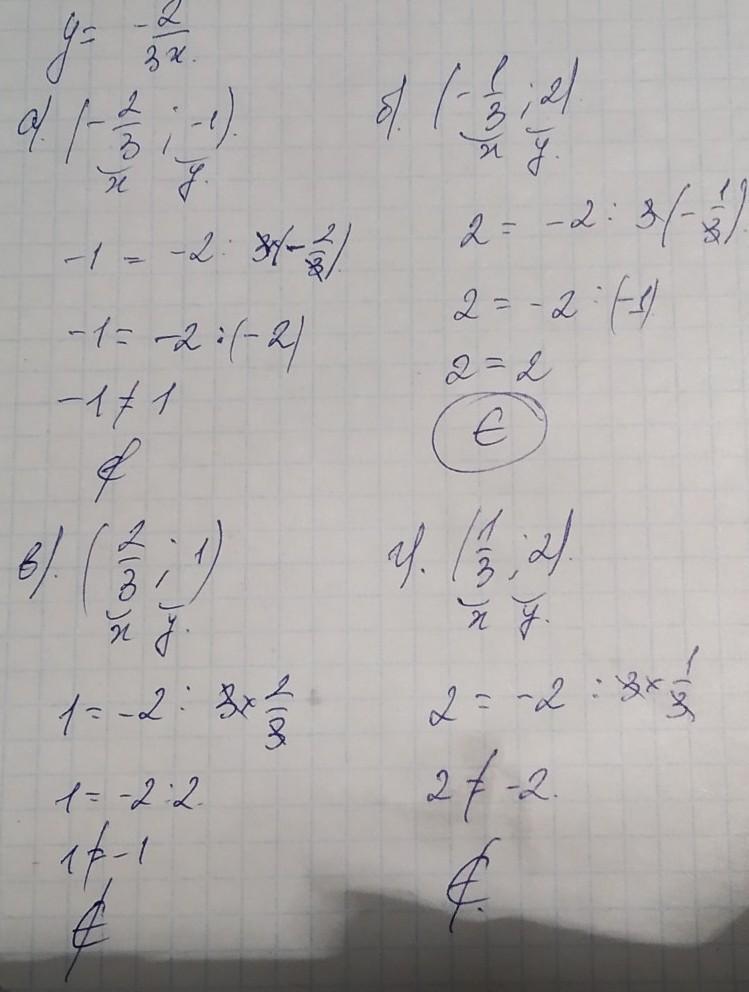 y = -2/3x.
а). (-2/3 ; -1).
x y.
-1 = -2 : 3(-2/3).
-1 = -2 : (-2)
-1 ≠ 1
∉
б). (-1/3 ; 2).
x y.
2 = -2 : 3(-1/3).
2 = -2 : (-1)
2 = 2
∈
в). (2/3 ; 1)
x y.
1 = -2 : 3 × 2/3
1 = -2 : 2.
1 ≠ -1
∉
г). (1/3 ; 2).
x y.
2 = -2 : 3 × 1/3
2 ≠ -2.
∉.